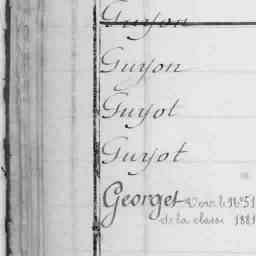 Guyon
Guyon
Guyot
Guyot
Georget Voir le N° 51
de la classe 1881